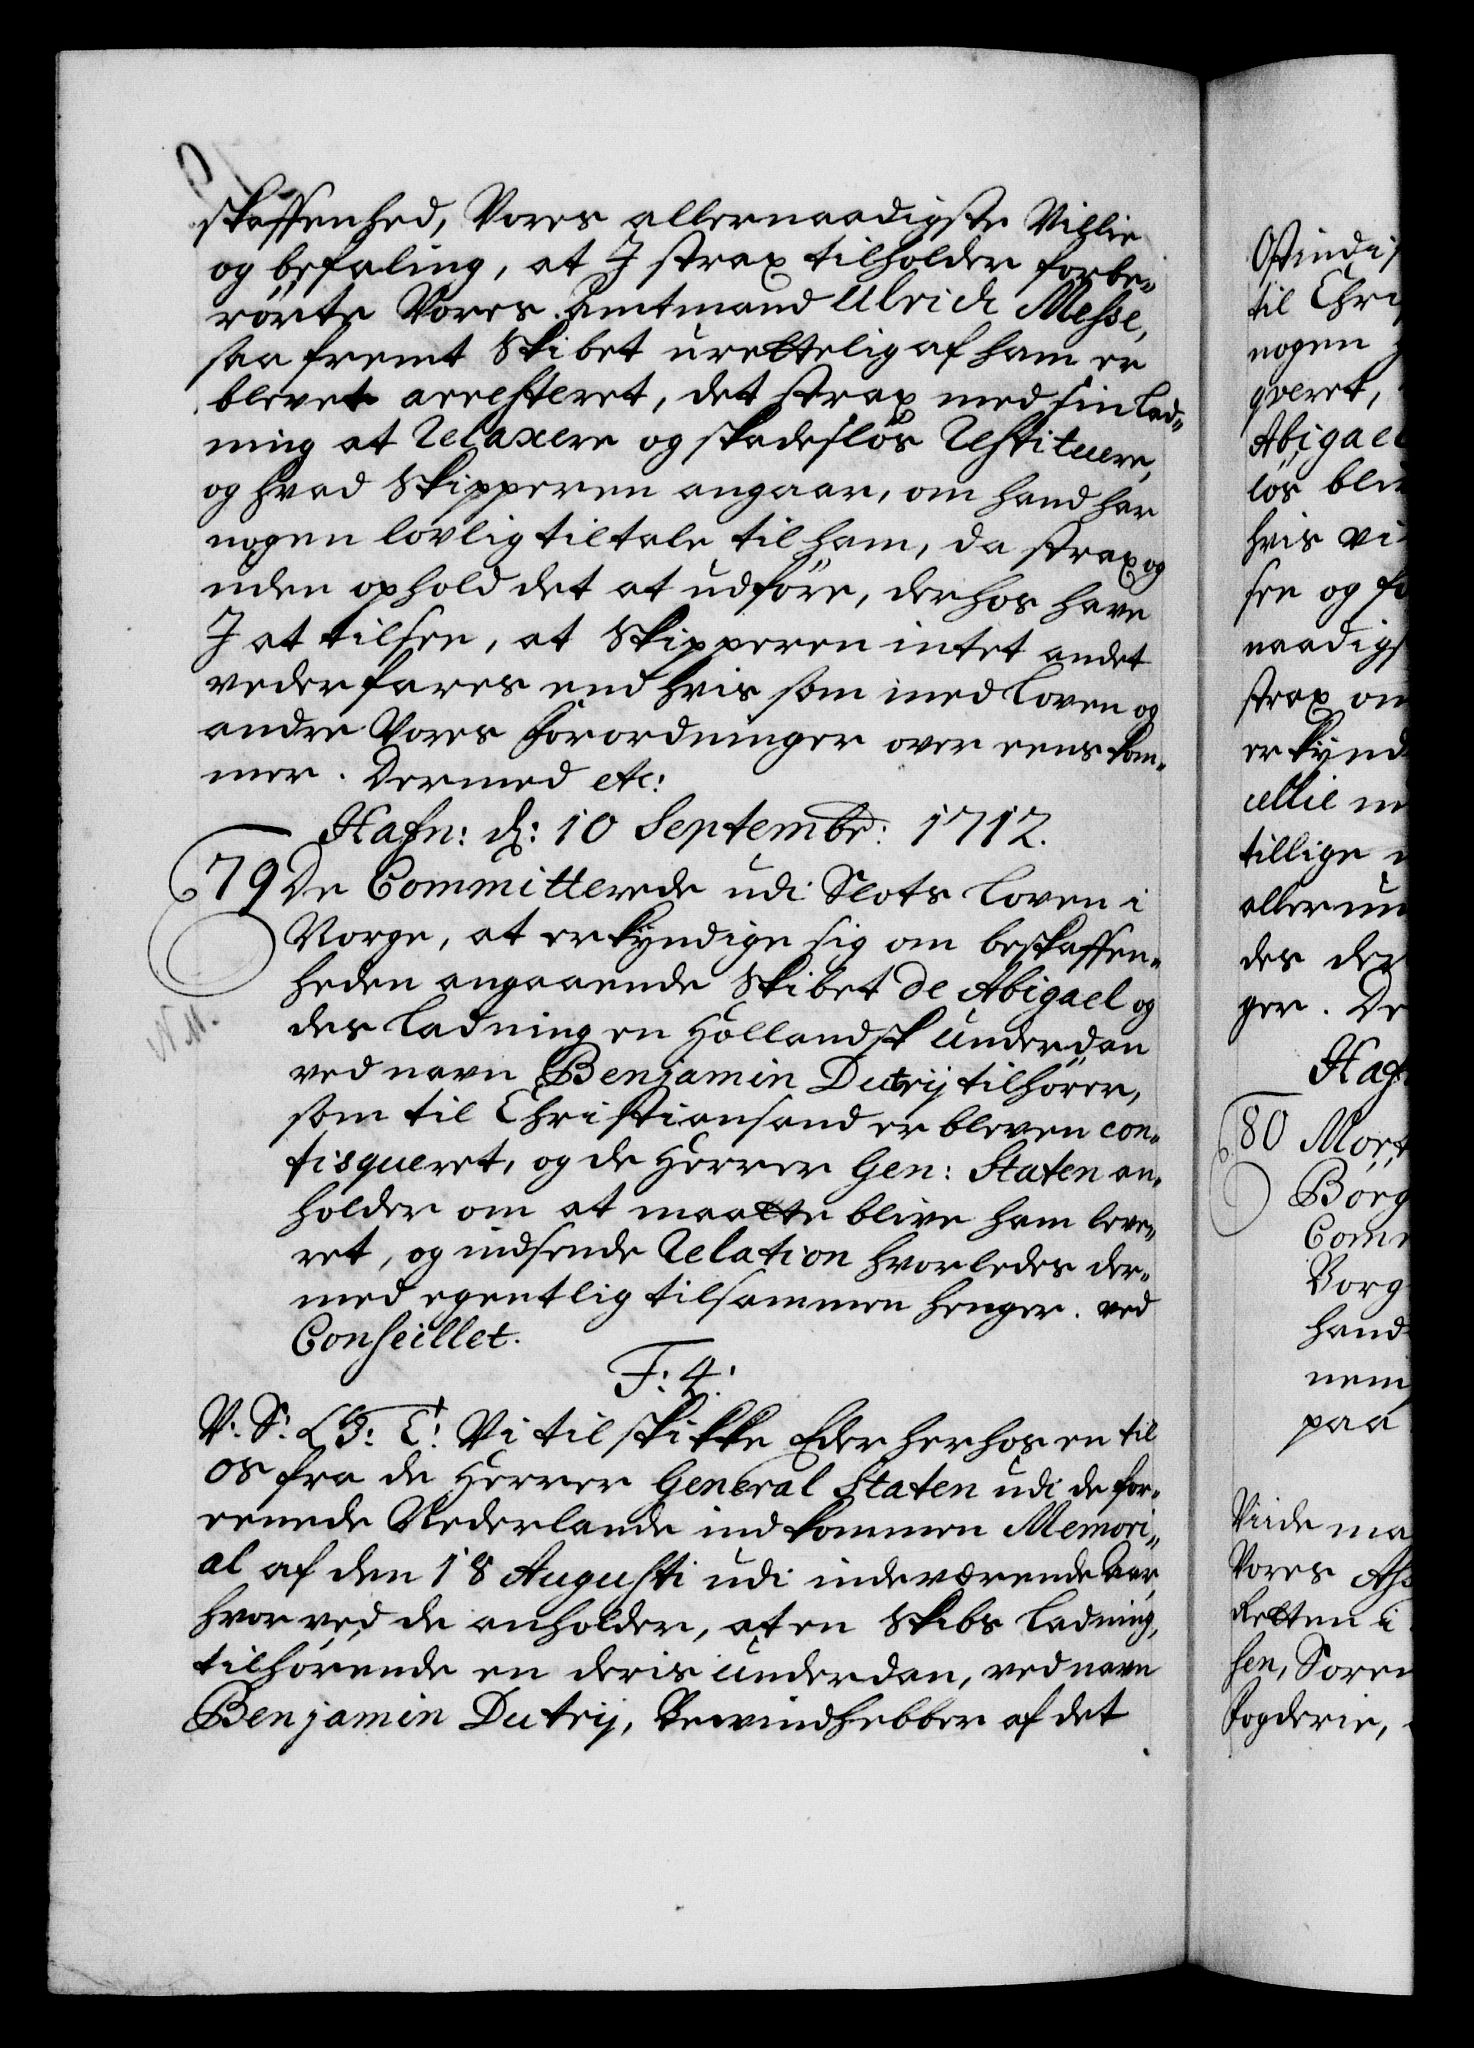 skaffenhed, Vores allernaadigste Villie
og befaling, at I strax tilholder forbe-
rörte Vores Amtmand Ulrich Messe,
saa fremt Skibet urettelig af ham er
blevet arresteret, det strax med sin Lad-
ning at Relaxere og skadeslös Restituere,
og hvad Skipperen angaar, om hand har
nogen lovlig tiltale til ham, da strax og
uden ophold det at udföre, derhos have
I at tilsee, at Skipperen intet andet
vederfares end hvis som med Loven og
andre Vores Forordninger over eens kom-
mer. Dermed etc:
Hafn: d: 10 Septembr: 1712.
79 De Committerede udi Slots Loven i
Norge, at erkyndige sig om beskaffen-
heden angaaende Skibet de Abigael og
des Ladning en Hollandsk Underdan
ved navn Benjamin Dutrij tilhörer,
som til Christiansand er bleven con-
fisqueret, og de Herrer Gen: Staten an-
holder om at maatte blive ham leve-
ret, og indsende Relation hvorledes der-
med egentlig tilsammen henger. ved
Conseillet.
N M.
F: 4:
V: S: G: T: Vi tilskikke Eder herhos en til
os fra de Herrer General Staten udi de for-
eenede Nederlande indkommen Memori-
al af den 18 Augusti udi indeværende Aar,
hvor ved de anholder, at en Skibs Ladning,
tilhörende en deris Underdan, ved navn
Benjamin Dutrij, Bewindhebber af det
Ostindis
til Chri
nogen
qveret,
Abigael
lös bli
hvis vi
see og fo
naadigs
strax om
erkynd
cellie m
tillige
aller un
des der
ger. De
Haf
80 Mort
Börg
Com
Norg
hand
nem
paa
Viide ma
Vores As
Retten i
sen, Soren
Fogderie,